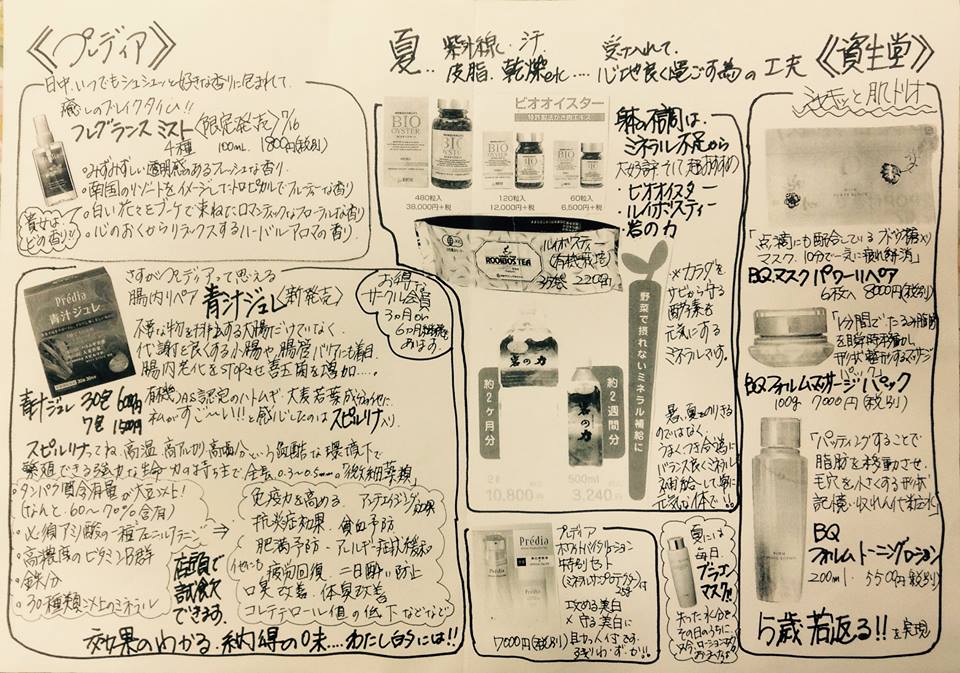 《プレディア》
日中、いつでもシュシュッと好きな香りに包まれて
癒しのブレイクタイム!!
フレグランスミスト(限定発売)7/16
4種 100mL 1800円(税別)
・みずみずしい透明感のあるフレッシュな香り
・南国のリゾートをイメージしたトロピカルでフルーティーな香り
・白い花々をブーケで束ねたロマンティックなフローラルな香り
・心のおくからリラックスするハーバルアロマの香り
貴女は
どの香り?
さすがプレディアって思える
腸内リペア 青汁ジュレ〈新発売〉
Prédia
青汁ジュレ
不要な物を排出する大腸だけでなく
代謝を良くする小腸や、腸管バリアにも着目。
腸内老化をSTOPさせ善玉菌を増加....。
有機JAS認定のハトムギ・大麦若葉成分の他に
私がすご〜い!!と感じたのはスピルリナ入り
青汁ジュレ 30包 6000円
7包 1500円
お得な
サークル会員
3ヵ月 or
6ヵ月
あります
スピルリナってね、高温、高アルカリ、高塩分という過酷な環境下で
繁殖できる強力な生命力の持ち主で全長0.3〜0.5mmの「微細藻類」
・タンパク質含有量が大豆以上!
(なんと、60〜70%含有)
・必須アミノ酸の一種フェニルアラニン
・高濃度のビタミンB群
・鉄分
・30種類以上のミネラル
店頭で
試飲食
できます。
免疫力を高める アンチエイジング効果
抗炎症効果・貧血予防
肥満予防・アレルギー症状緩和
他にも
疲労回復・二日酔い防止
口臭改善・体臭改善
コレステロール値の低下などなど
効果のわかる、納得の1味....わたし的には!!
夏‥ 紫外線・汗
皮脂、乾燥etc....
受け入れて、
心地良く過ごす為の工夫
BIO
OYSTER
ビオオイスター
特許製法かき肉エキス
480粒入
38,000円+税
120粒入
12,000円+税
60粒入
6,500円+税
体の不調は、
ミネラル不足から
大好評 そして 超おすすめの
・ビオオイスター
・ルイボスティー
・岩の力
ROOIBOS TEA
ルイボスティー
(有機栽培)
35袋 2,200円
*カラダを
サビから守る
酵素を
元気にする
ミネラルです。
野菜で摂れないミネラル補給に
岩の力
約2ヶ月分
約2週間分
2ℓ
10,800円
500ml
3,240円
暑い夏をのりきる
のではなく、
うまくつき合う為に
バランス良くミネラル
を補給して、常に
元気な1体で!!
プレディア
特別セット
(ミネラルサンプロテクター)は
25g
攻める美白
×守る美白に
7000円(税別)
残りわずか!!
夏には
毎日
プラコン
マスク!!
失った水分を
その日のうちに
《資生堂》
シャキッと肌トリオ
「点滴にも配合しているブドウ糖入り
マスク、10分で一気に疲れ解消」
BQ マスク パワーリペア
6枚入 8000円(税別)
「1分間でたるみ脂肪
を瞬時溶解し、
形状整形するマッサージ
パック」
BQ フォルムマッサージパック
100g 7000円(税別)
「パッティングすることで
脂肪を移動させ、
毛穴を小さくする形状
記憶・収れん化粧水」
BQ
フォルムトーニングローション
200ml 5500円(税別)
5歳若返る!!を実現